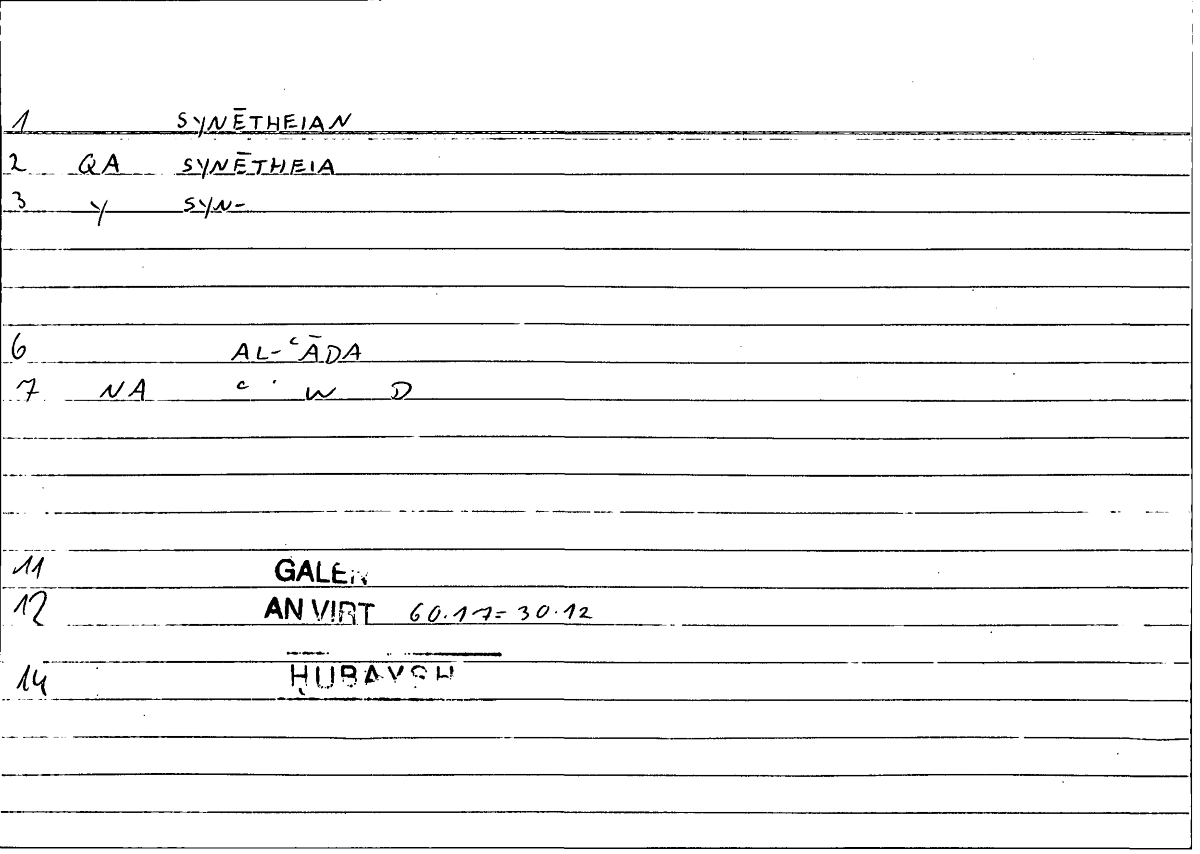 1 SYNĒTHEIAN
2 QA SYNĒTHEIA
3 Y SYN-
6 AL-ᶜĀDA
7 NA ᶜ W D
11 GALEN
12 AN VIRT 60.17=30.12
14 ḤUBAYSH